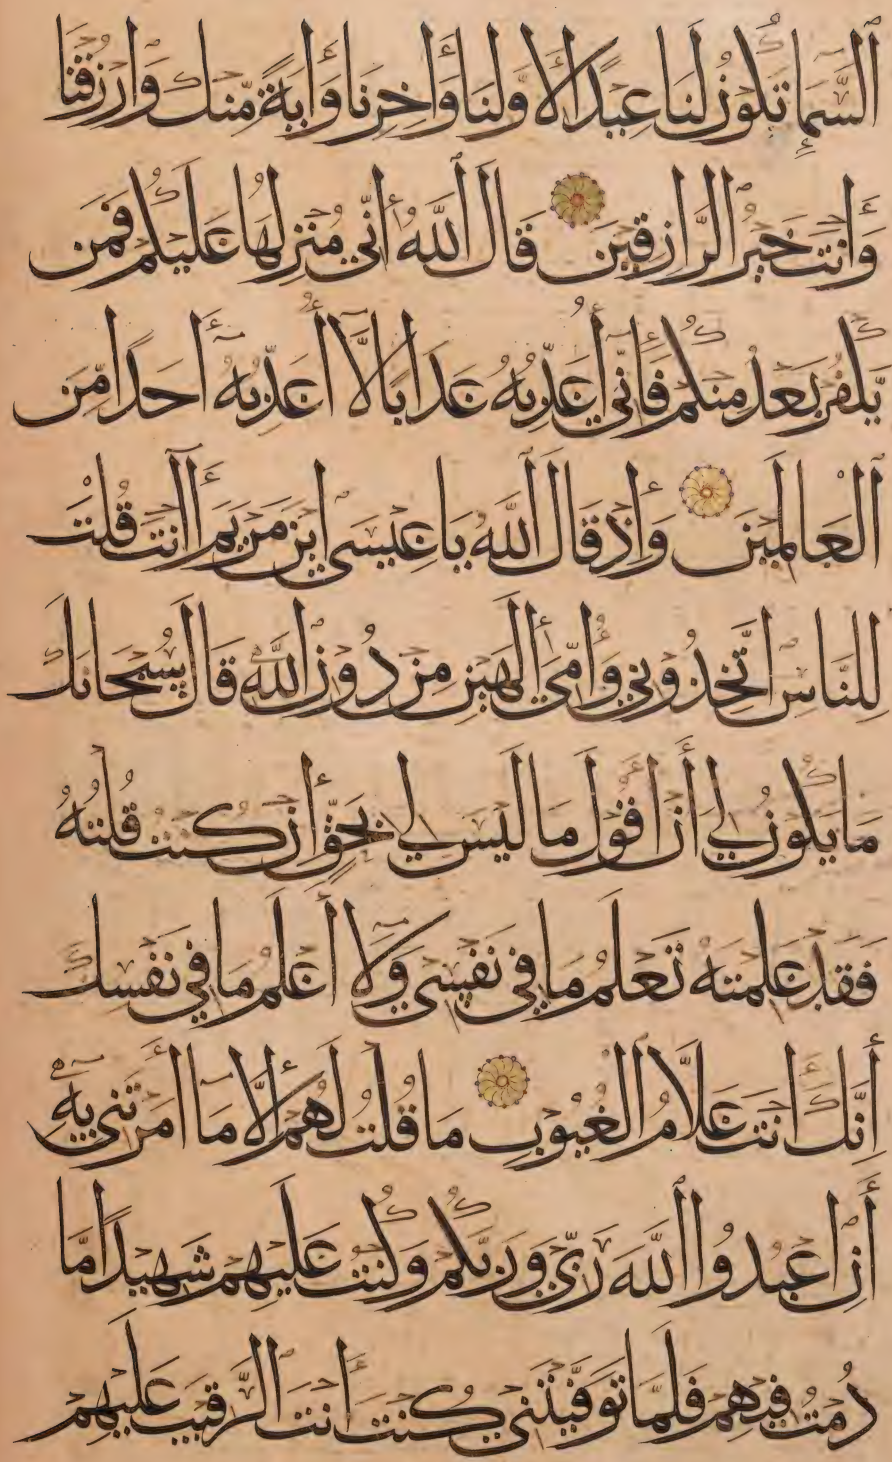 السَّمَاءِ تَكُونُ لَنَا عِيدًا لِأَوَّلِنَا وَآخِرِنَا وَآيَةً مِّنكَ وَارْزُقْنَا
وَأَنتَ خَيْرُ الرَّازِقِينَ قَالَ اللَّهُ إِنِّي مُنَزِّلُهَا عَلَيْكُمْ فَمَن
يَكْفُرْ بَعْدُ مِنكُمْ فَإِنِّي أُعَذِّبُهُ عَذَابًا لَّا أُعَذِّبُهُ أَحَدًا مِّنَ
الْعَالَمِينَ وَإِذْ قَالَ اللَّهُ يَا عِيسَى ابْنَ مَرْيَمَ أَأَنتَ قُلْتَ
لِلنَّاسِ اتَّخِذُونِي وَأُمِّيَ إِلَٰهَيْنِ مِن دُونِ اللَّهِ قَالَ سُبْحَانَكَ
مَا يَكُونُ لِي أَنْ أَقُولَ مَا لَيْسَ لِي بِحَقٍّ إِن كُنتُ قُلْتُهُ
فَقَدْ عَلِمْتَهُ تَعْلَمُ مَا فِي نَفْسِي وَلَا أَعْلَمُ مَا فِي نَفْسِكَ
إِنَّكَ أَنتَ عَلَّامُ الْغُيُوبِ مَا قُلْتُ لَهُمْ إِلَّا مَا أَمَرْتَنِي بِهِ
أَنِ اعْبُدُوا اللَّهَ رَبِّي وَرَبَّكُمْ وَكُنتُ عَلَيْهِمْ شَهِيدًا مَّا
دُمْتُ فِيهِمْ فَلَمَّا تَوَفَّيْتَنِي كُنتَ أَنتَ الرَّقِيبَ عَلَيْهِمْ